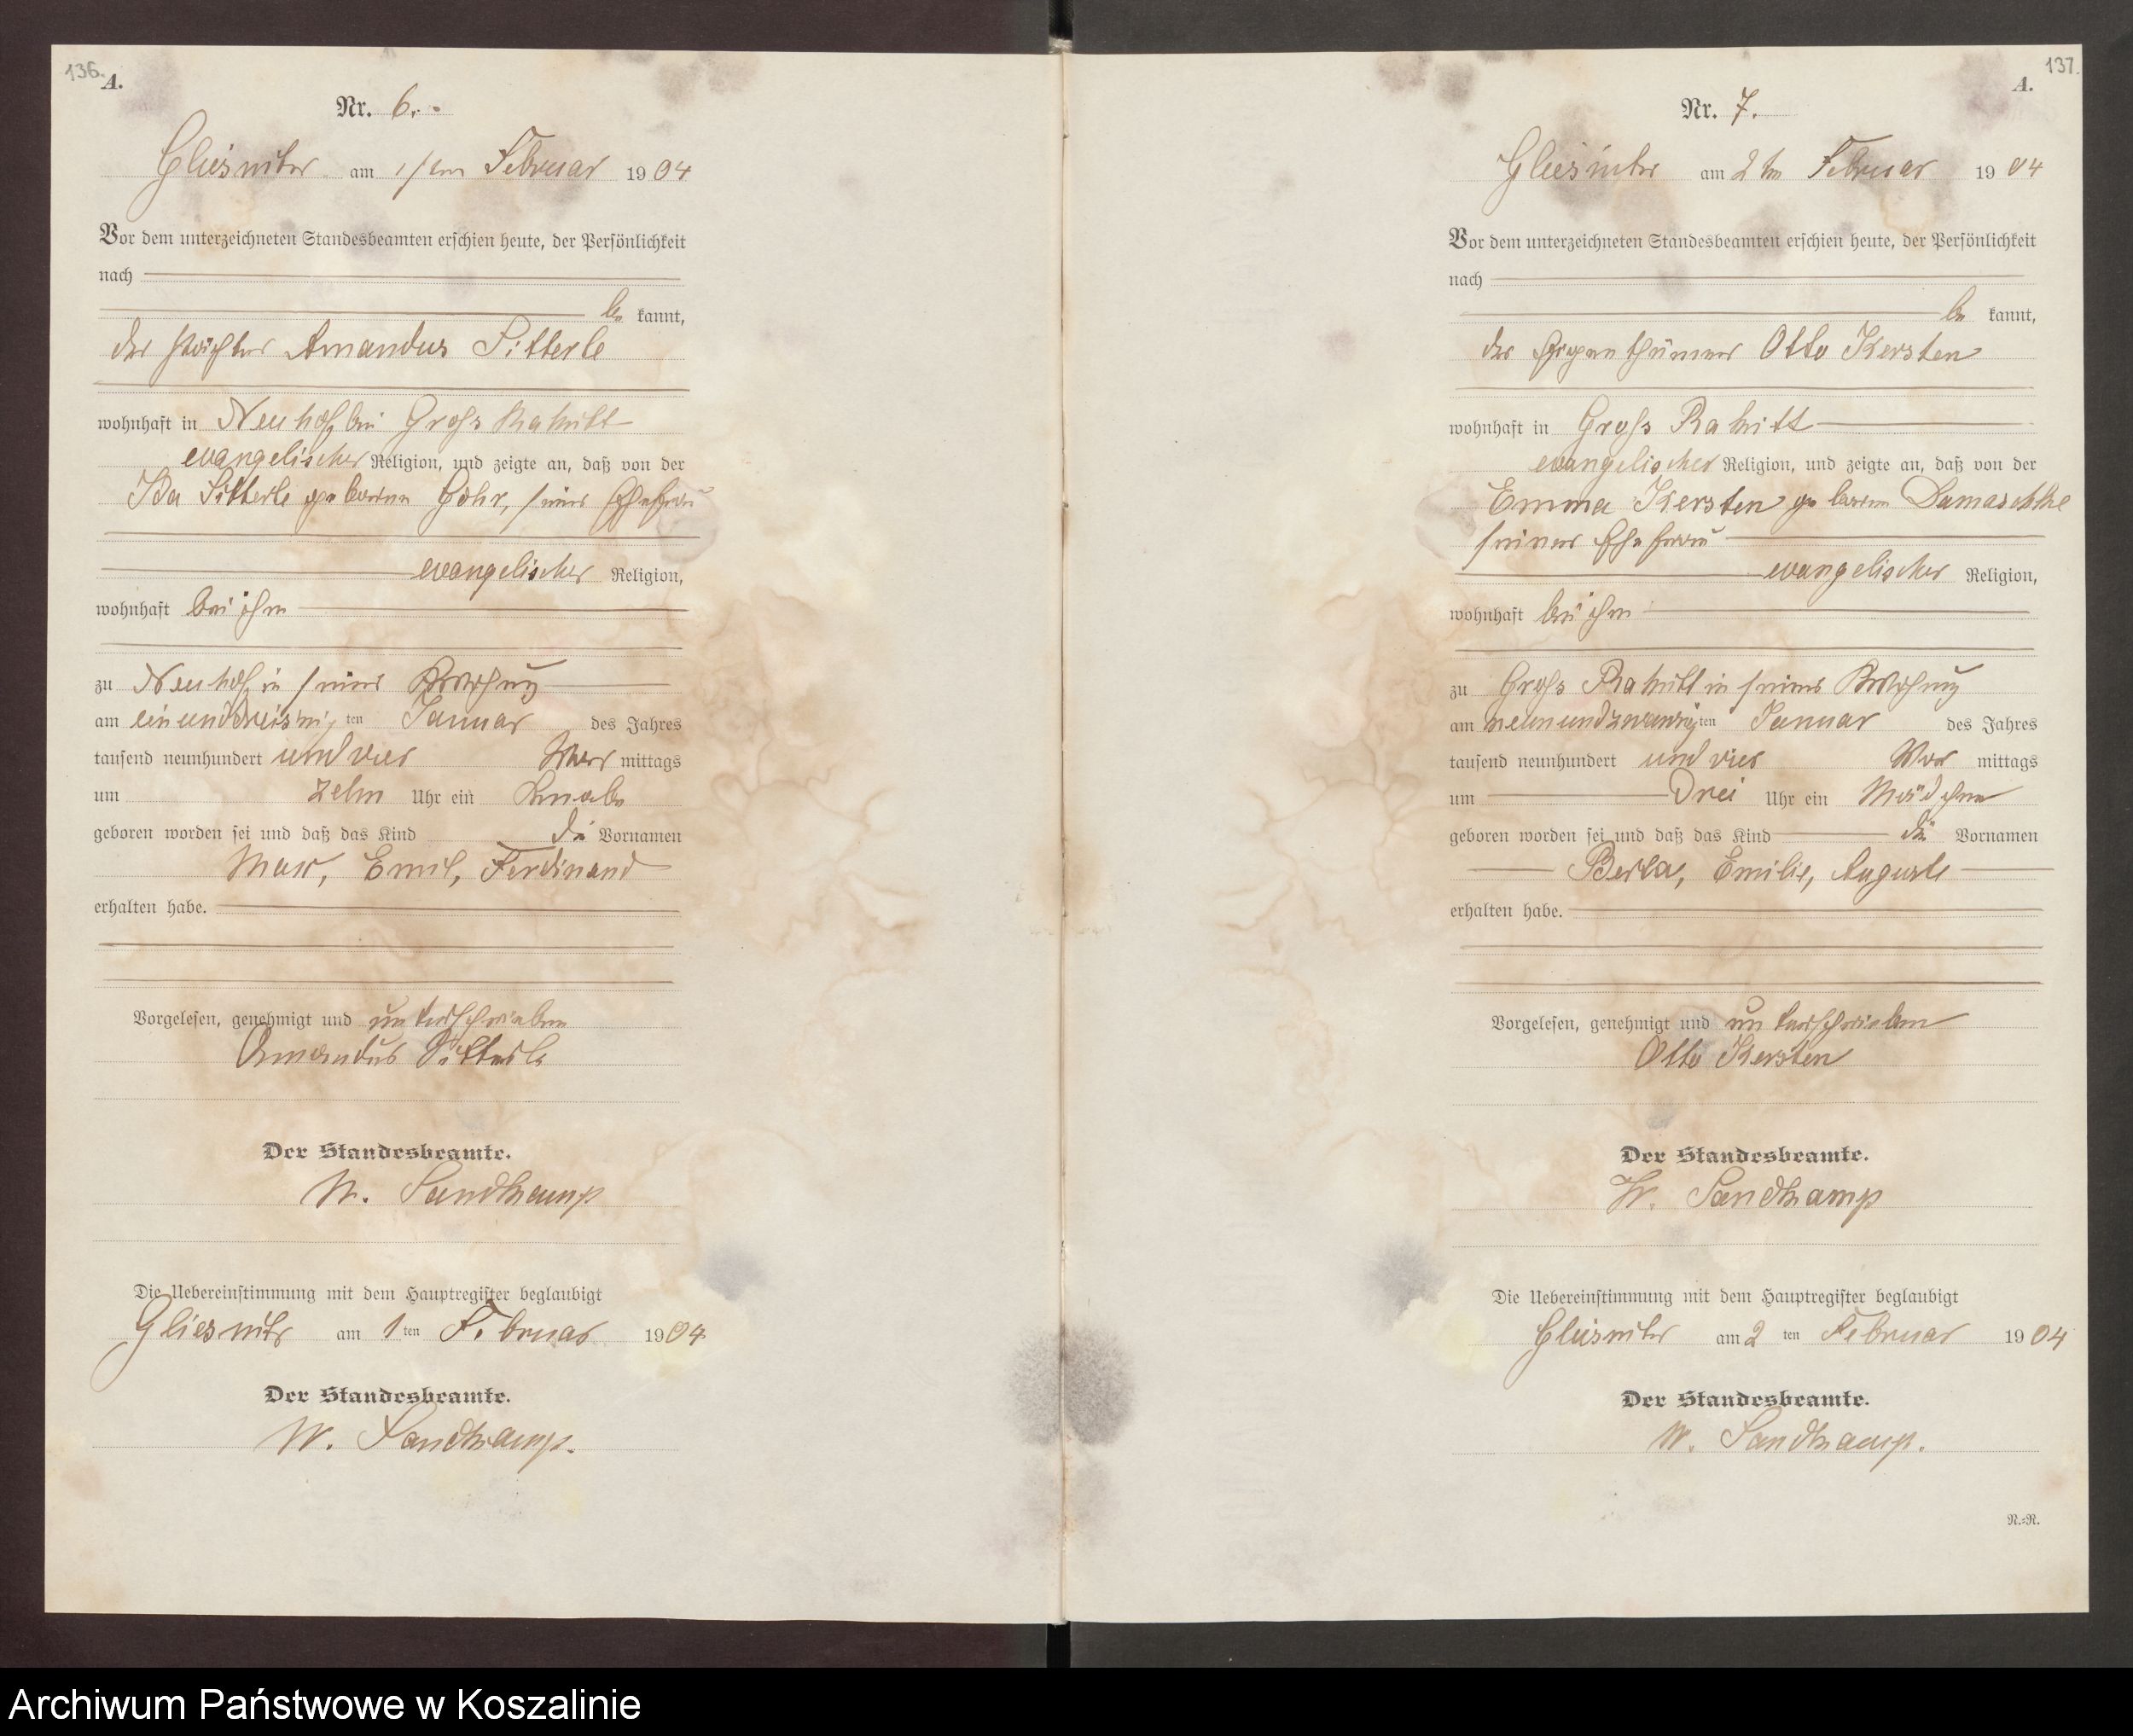 136.
A.
Nr. 6.
Gliesnitz am 1ten Februar 1904
Vor dem unterzeichneten Standesbeamten erschien heute, der Persönlichkeit
nach
be kannt,
der Pächter Amandus Sitterle
wohnhaft in Neuhof bei Gross Rakitt
evangelischer Religion, und zeigte an, daß von der
Ida Sitterle geborene Göhr, seiner Ehefrau
evangelischer Religion,
wohnhaft bei ihm
zu Neuhof in seiner Wohnung
am einunddreissig ten Januar des Jahres
tausend neunhundert und vier Vor mittags
um zehn Uhr ein Knabe
geboren worden sei und daß das Kind die Vornamen
Max, Emil, Ferdinand
erhalten habe.
Vorgelesen, genehmigt und unterschrieben
Amandus Sitterle
Der Standesbeamte.
W. Sandkamp
Die Uebereinstimmung mit dem Hauptregister beglaubigt
Gliesnitz am 1 ten Februar 1904
Der Standesbeamte.
W. Sandkamp.
137.
A.
Nr. 7.
Gliesnitz am 2ten Februar 1904
Vor dem unterzeichneten Standesbeamten erschien heute, der Persönlichkeit
nach
be kannt,
der Eigenthümer Otto Kersten
wohnhaft in Gross Rakitt
evangelischer Religion, und zeigte an, daß von der
Emma Kersten geborene Damaschke
seiner Ehefrau
evangelischer Religion,
wohnhaft bei ihm
zu Gross Rakitt in seiner Wohnung
am neunundzwanzig ten Januar des Jahres
tausend neunhundert und vier Vor mittags
um Drei Uhr ein Mädchen
geboren worden sei und daß das Kind die Vornamen
Berta, Emilie, Auguste
erhalten habe.
Vorgelesen, genehmigt und unterschrieben
Otto Kersten
Der Standesbeamte.
W. Sandkamp
Die Uebereinstimmung mit dem Hauptregister beglaubigt
Gliesnitz am 2 ten Februar 1904
Der Standesbeamte.
W. Sandkamp.
N.=R.
Archiwum Państwowe w Koszalinie